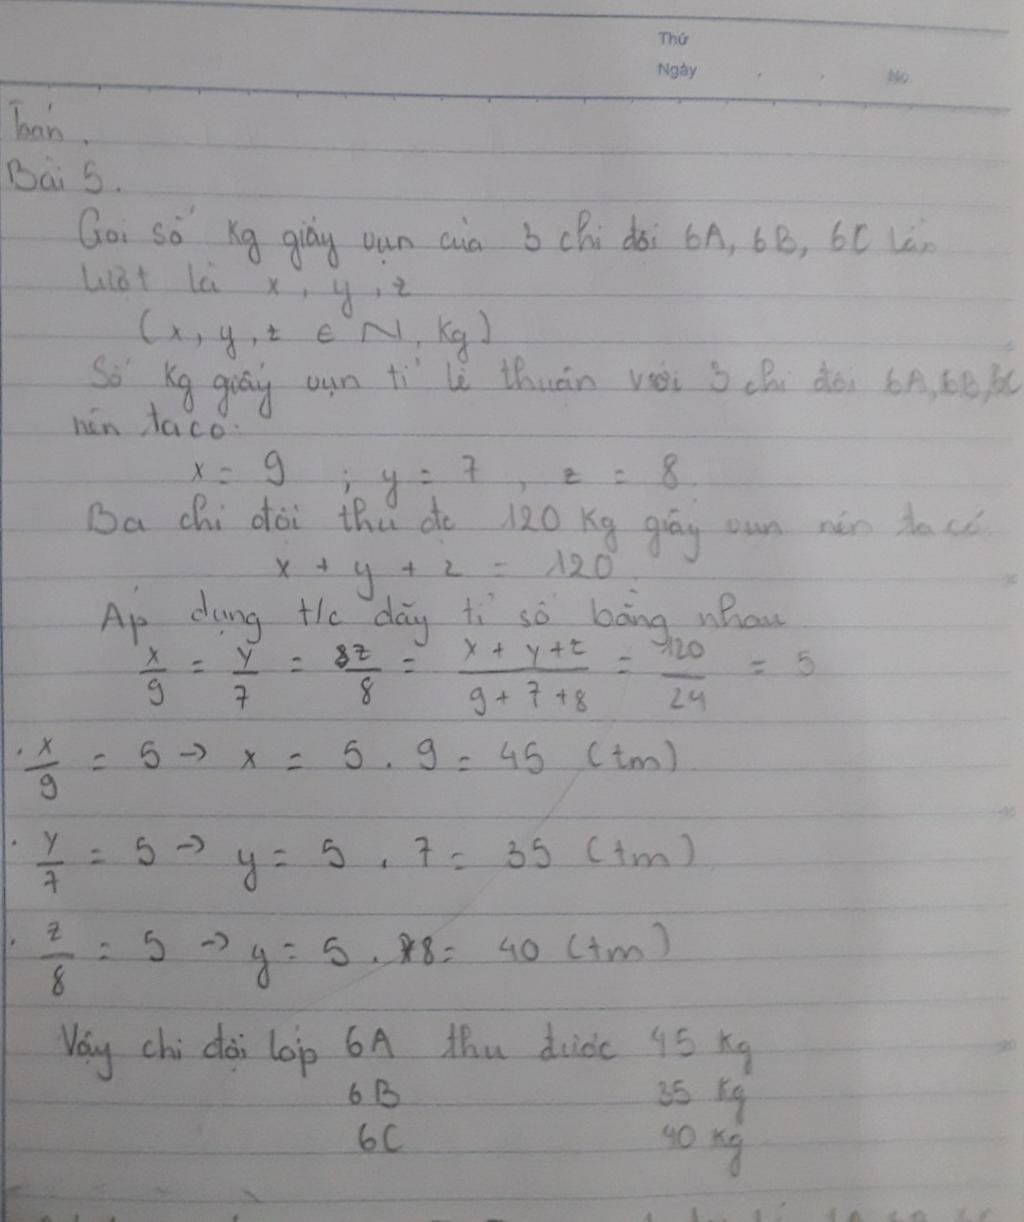 Thứ
Ngày . . No.
Toán.
Bài 5.
Gọi số kg giấy vụn của 3 chi đội 6A, 6B, 6C lần
lượt là x, y, z
(x, y, z ∈ N, kg)
Số kg giấy vụn tỉ lệ thuận với 3 chi đội 6A, 6B, 6C
nên ta có:
x = 9 ; y = 7 , z = 8.
Ba chi đội thu đc 120 kg giấy vụn nên ta có
x + y + z = 120.
Áp dụng t/c dãy tỉ số bằng nhau
x/9 = y/7 = z/8 = (x + y + z)/(9 + 7 + 8) = 120/24 = 5
. x/9 = 5 → x = 5 . 9 = 45 (tm)
. y/7 = 5 → y = 5 . 7 = 35 (tm)
. z/8 = 5 → y = 5 . 8 = 40 (tm)
Vậy chi đội lớp 6A thu được 45 kg
6B 35 kg
6C 40 kg